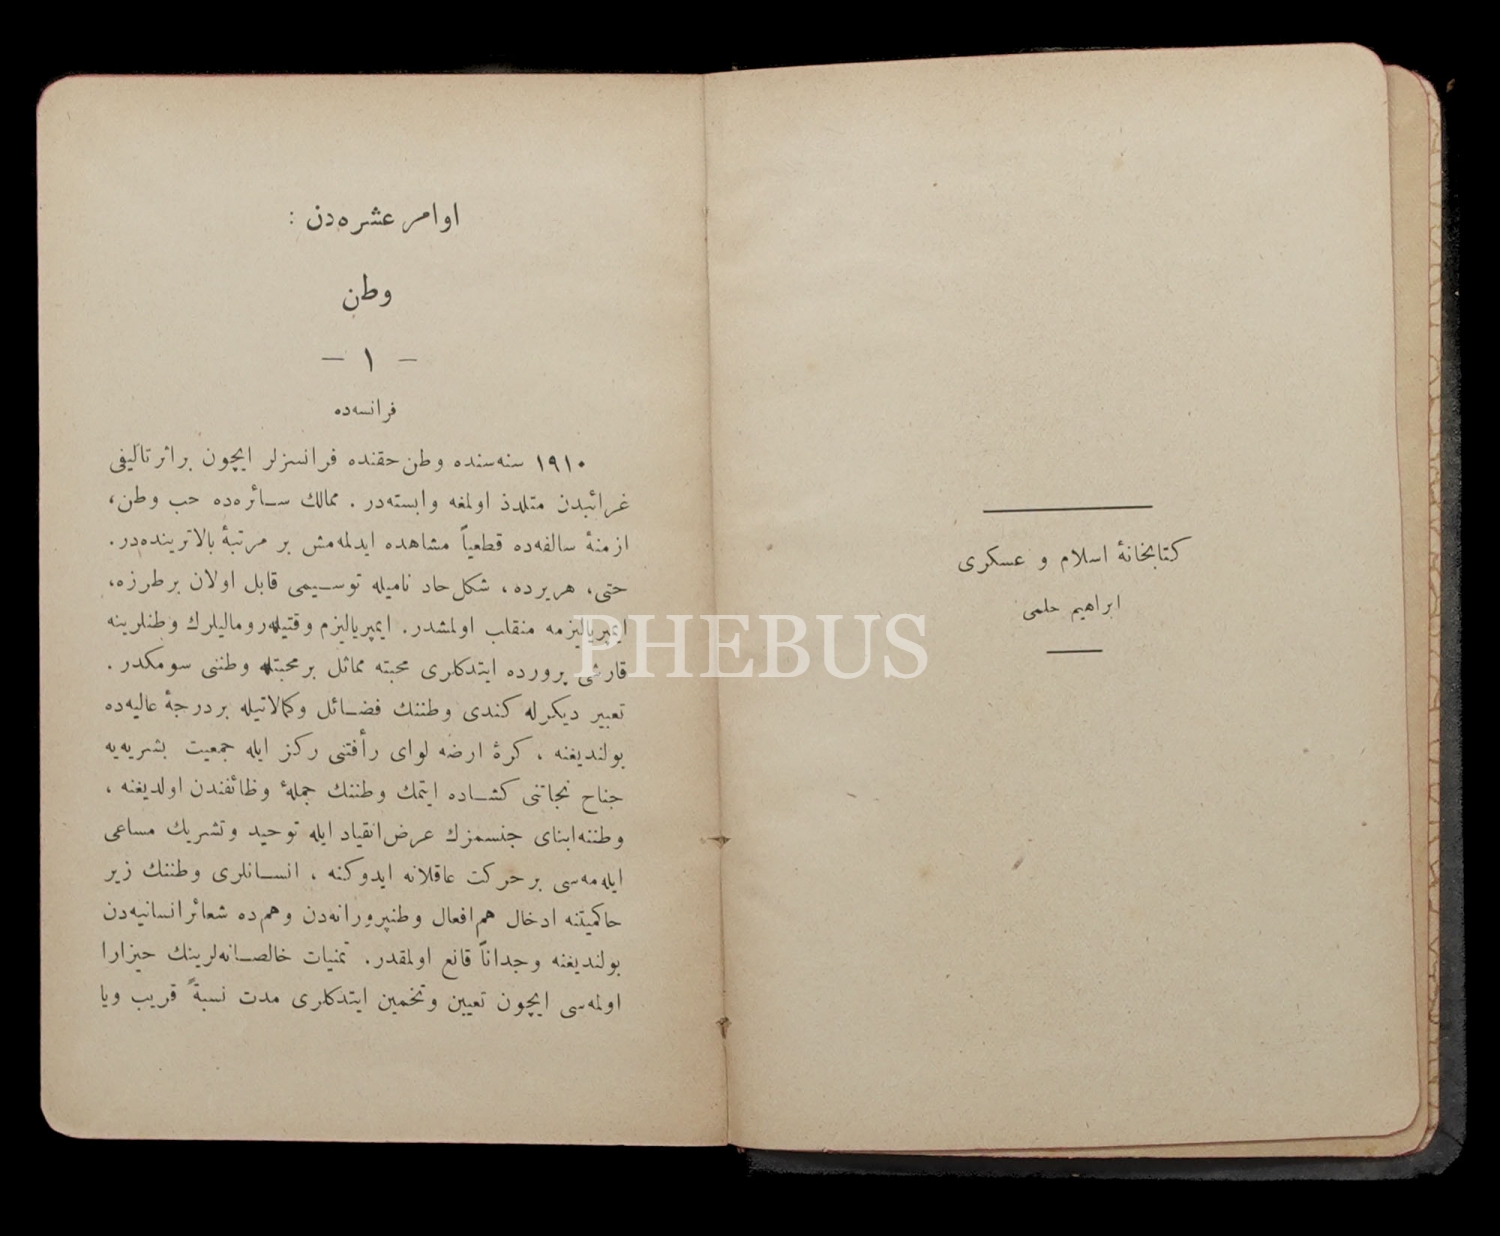 كتابخانۀ اسلام و عسكری
ابراهيم حلمی
اوامر عشره‌دن :
وطن
— ١ —
فرانسه‌ده
١٩١٠ سنه‌سنده وطن حقنده فرانسزلر ايچون بر اثر تأليفی
غرائبدن متلذذ اولمغه وابسته‌در . ممالك سائره‌ده حب وطن،
ازمنۀ سالفه‌ده قطعياً مشاهده ايدلمه‌مش بر مرتبۀ بالاترينده‌در.
حتی، هريرده، شكل حاد ناميله توسيمی قابل اولان بر طرزه،
ايمپرياليزمه منقلب اولمشدر. ايمپرياليزم وقتيله روماليلرك وطنلرينه
قارشی پرورده ايتدكلری محبته مماثل بر محبتله وطننی سومكدر .
تعبير ديكرله كندی وطننك فضائل وكمالاتيله بر درجۀ عاليه‌ده
بولنديغنه ، كرۀ ارضه لوای رأفتنی ركز ايله جمعيت بشريه‌يه
جناح نجاتنی كشاده ايتمك وطننك جملۀ وظائفندن اولديغنه ،
وطننه ابنای جنسمزك عرض انقياد ايله توحيد وتشريك مساعی
ايله‌مه‌سی بر حركت عاقلانه ايدوكنه ، انسانلری وطننك زير
حاكميتنه ادخال هم افعال وطنپرورانه‌دن وهم‌ده شعائر انسانيه‌دن
بولنديغنه وجداناً قانع اولمقدر. تمنيات خالصانه‌لرينك حيزارا
اولمه‌سی ايچون تعيين وتخمين ايتدكلری مدت نسبةً قريب ويا
PHEBUS